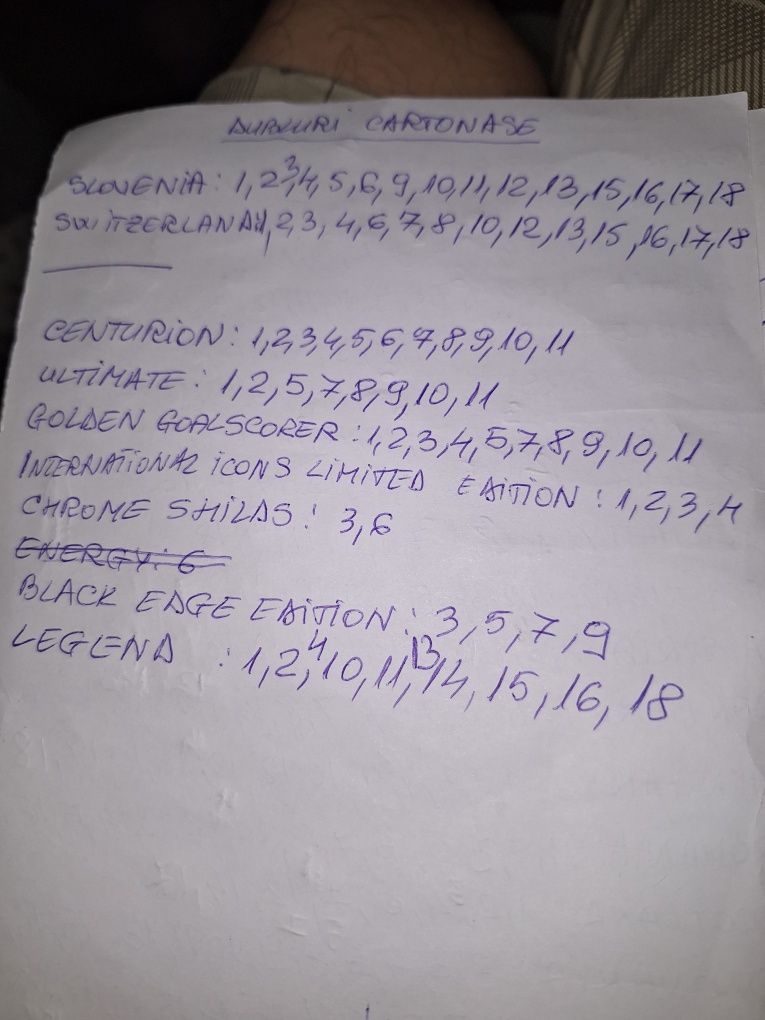 DUBLURI CARTONASE
SLOVENIA: 1,2,3,4,5,6,9,10,11,12,13,15,16,17,18
SWITZERLAND:1,2,3,4,6,7,8,10,12,13,15,16,17,18
CENTURION: 1,2,3,4,5,6,7,8,9,10,11
ULTIMATE: 1,2,5,7,8,9,10,11
GOLDEN GOALSCORER: 1,2,3,4,5,7,8,9,10,11
INTERNATIONAL ICONS LIMITED EDITION: 1,2,3,4
CHROME SHILDS: 3,6
ENERGY: 6
BLACK EDGE EDITION: 3,5,7,9
LEGLEND : 1,2,4,10,11,13,14,15,16,18